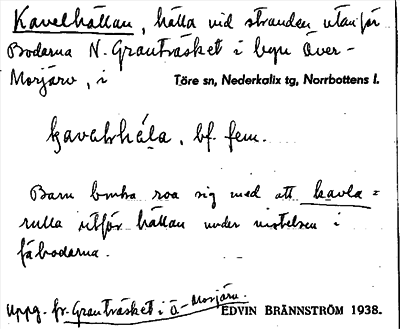 Kavelhällan, hälla vid stranden utanför
Bodarna N. Granträsket i byn Över-
Morjärv, i Töre sn, Nederkalix tg, Norrbottens l.
kavalhäla, bf. fem.
Barn bruka roa sig med att kavla =
rulla utför hällan under vistelsen i
fäbodarna.
Uppg. fr. Granträsket i Ö-Morjärv.
EDVIN BRÄNNSTRÖM 1938.